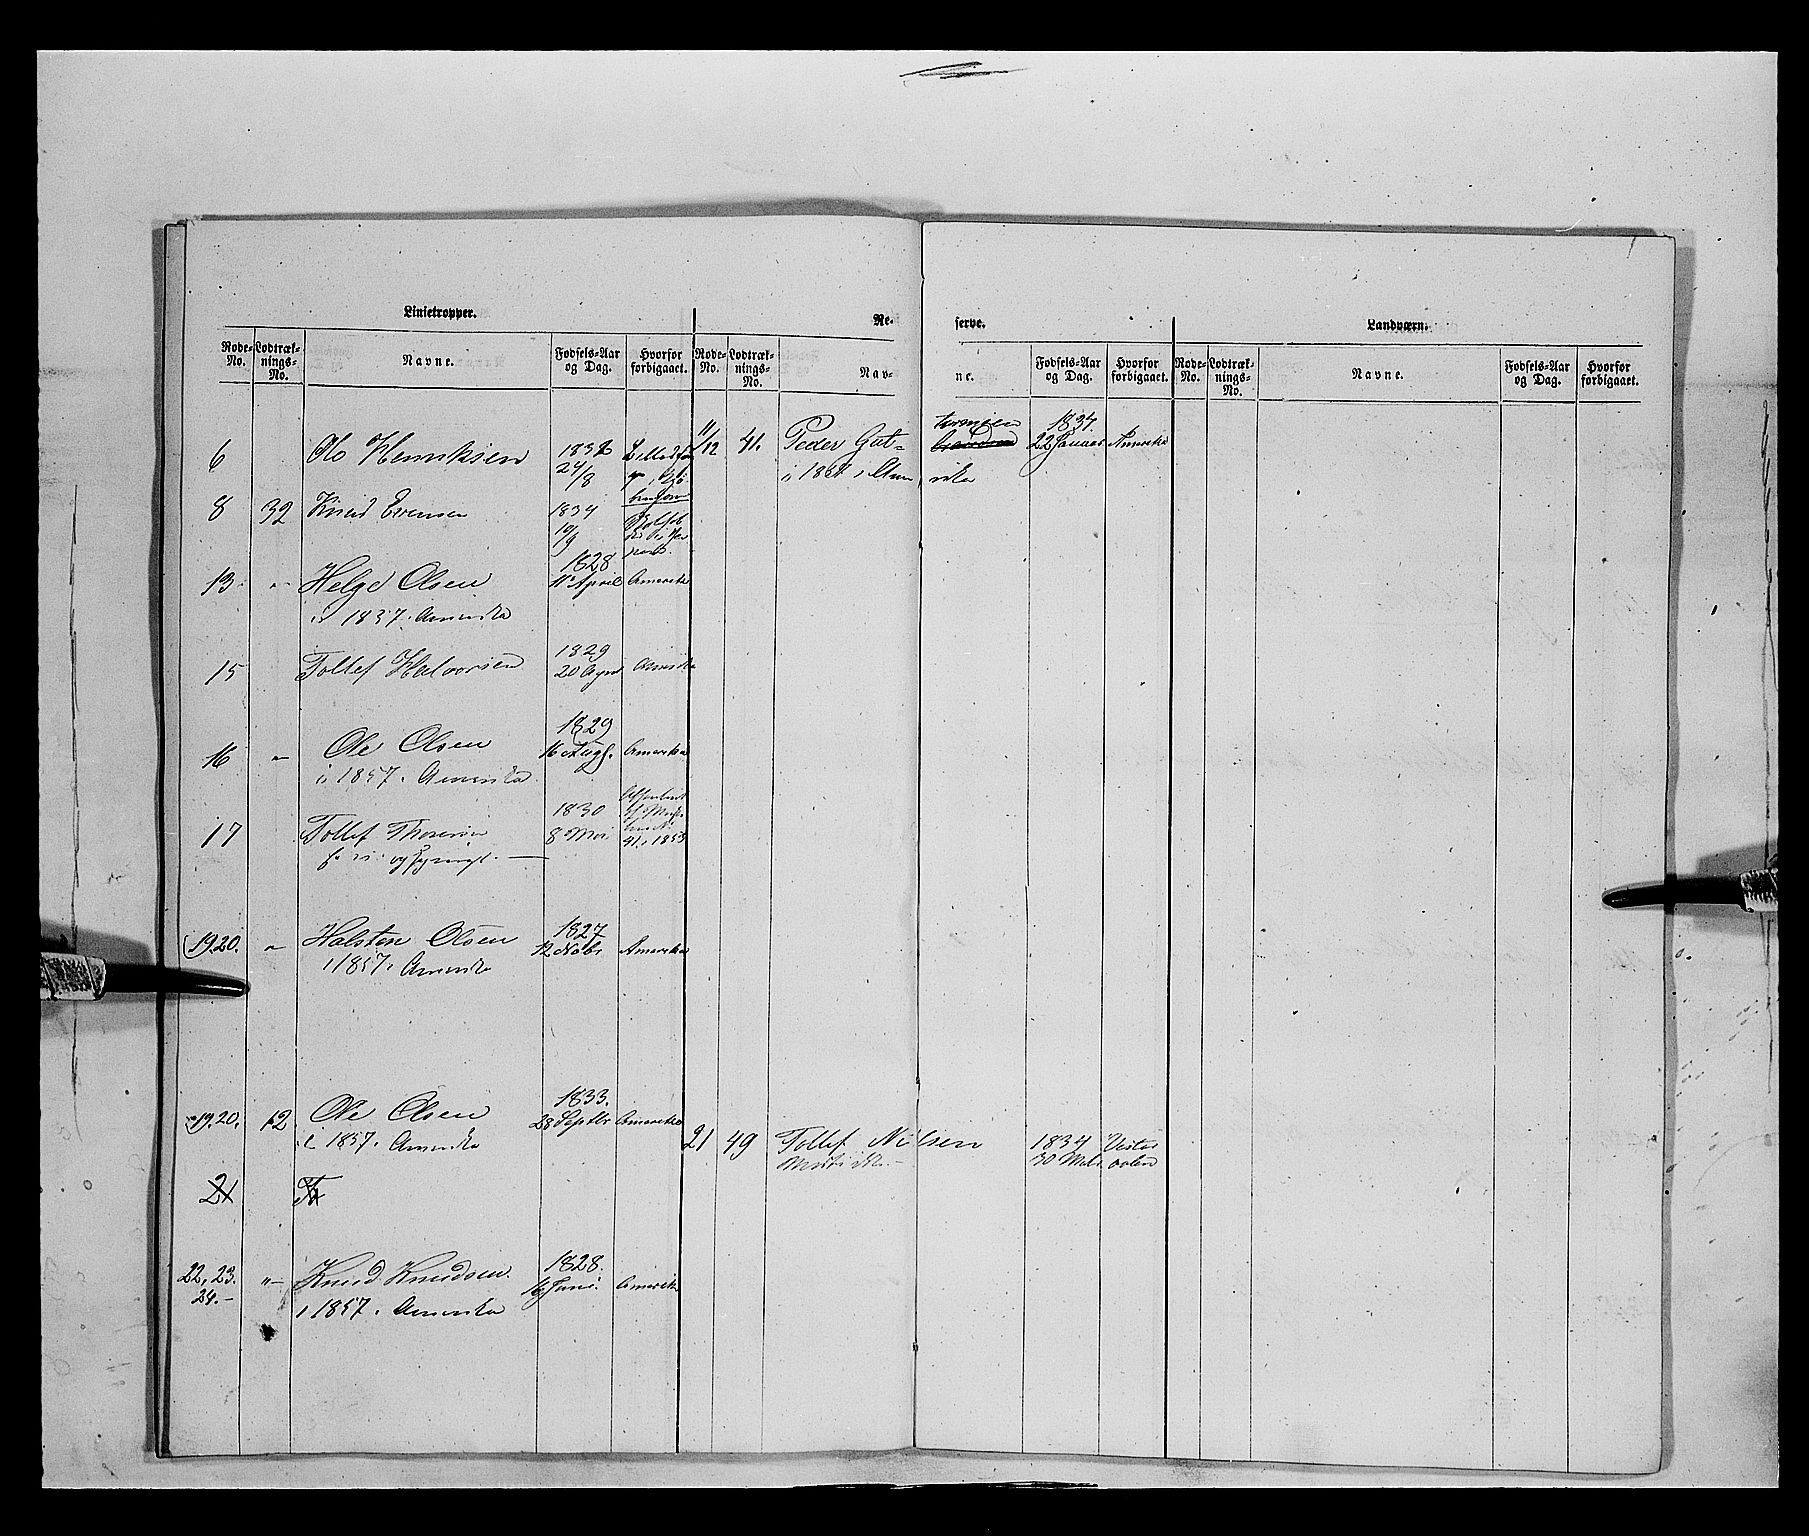 Linietropper.
Re-
serve.
Landværn.
Rode-No. Lodtræk-nings-No. Navne. Fødsels-Aar og Dag. Hvorfor forbigaaet.
Rode-No. Lodtræk-nings-No. Nav-
ne. Fødsels-Aar og Dag. Hvorfor forbigaaet.
Rode-No. Lodtræk-nings-No. Navne. Fødsels-Aar og Dag. Hvorfor forbigaaet.
6 Ole Henriksen 24/8
11/12 41. Peder Gut-
tormsen 1837. 22 Januar Amerika
8 32 Knud Evensen 1834 19/9
13 " Helge Olsen 1828 11 April Amerika
i 1857 i Amerika
15 Tollef Halvorsen 1829 20 Amerika
16 " Ole Olsen 1829 16 Augs. Amerika
i 1857 i Amerika
17 Tollef 1830 8 Mai 1853
19.20. " Halsten Olsen 1827 12 Novbr Amerika
i 1857 i Amerika
19.20. 12 Ole Olsen 1833. 28 Septbr Amerika
i 1857 i Amerika
21 49 Tollef Nilsen 1834
21
22, 23. 24. " Knud Knudsen. 1828. 16 Juni. Amerika
i 1857 i Amerika